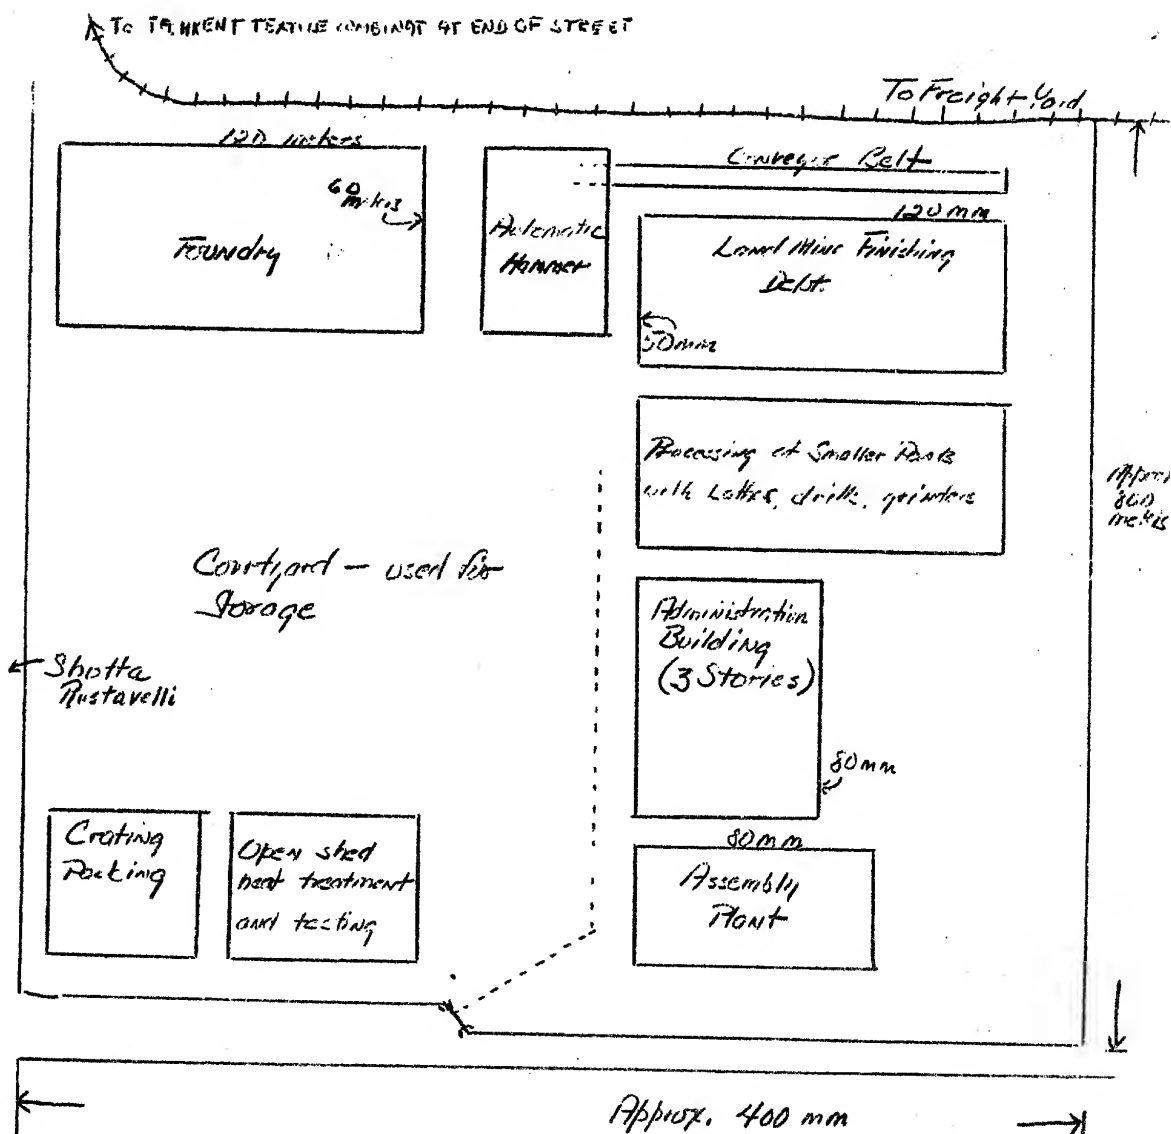 To TASHKENT TEXTILE COMBINAT AT END OF STREET
To Freight Yard
120 meters
60
Foundry
Automatic
Hammer
Conveyor Belt
120 mm
Land Mine Finishing
50mm
Processing of Smaller Parts
with Lathes, drills, grinders
Approx
800
Courtyard — used for
Storage
Administration
Building
(3 Stories)
Shotta
Rustavelli
80mm
Crating
Packing
Open shed
heat treatment
and testing
80mm
Assembly
Plant
Approx. 400 mm